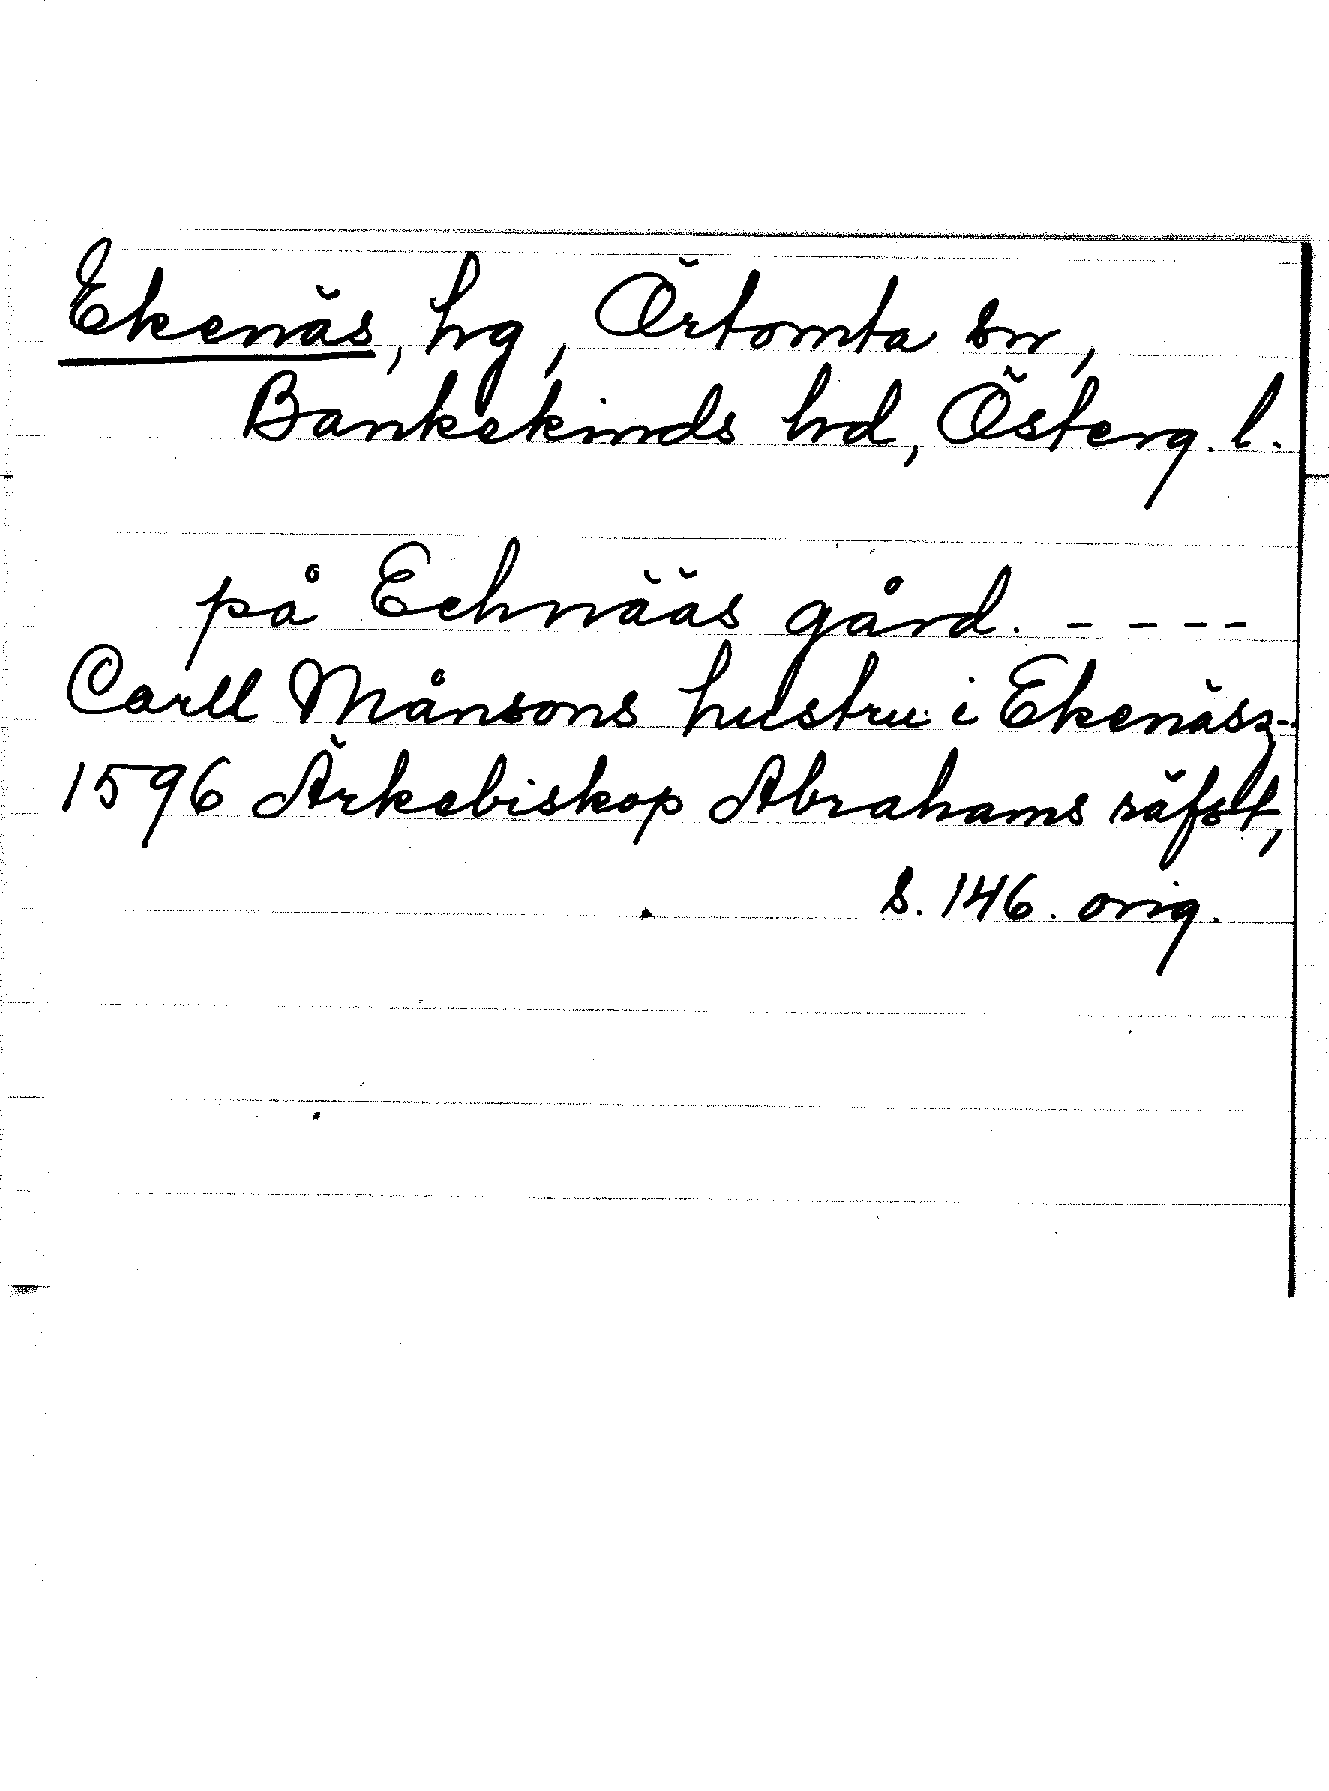 Ekenäs, hg, Örtomta sn,
Bankekinds hd, Österg. l.
på Echnääs gård. - - - -
Carll Månsons hustru i Ekenäsz
1596 Ärkebiskop Abrahams räfst,
s. 146. orig.